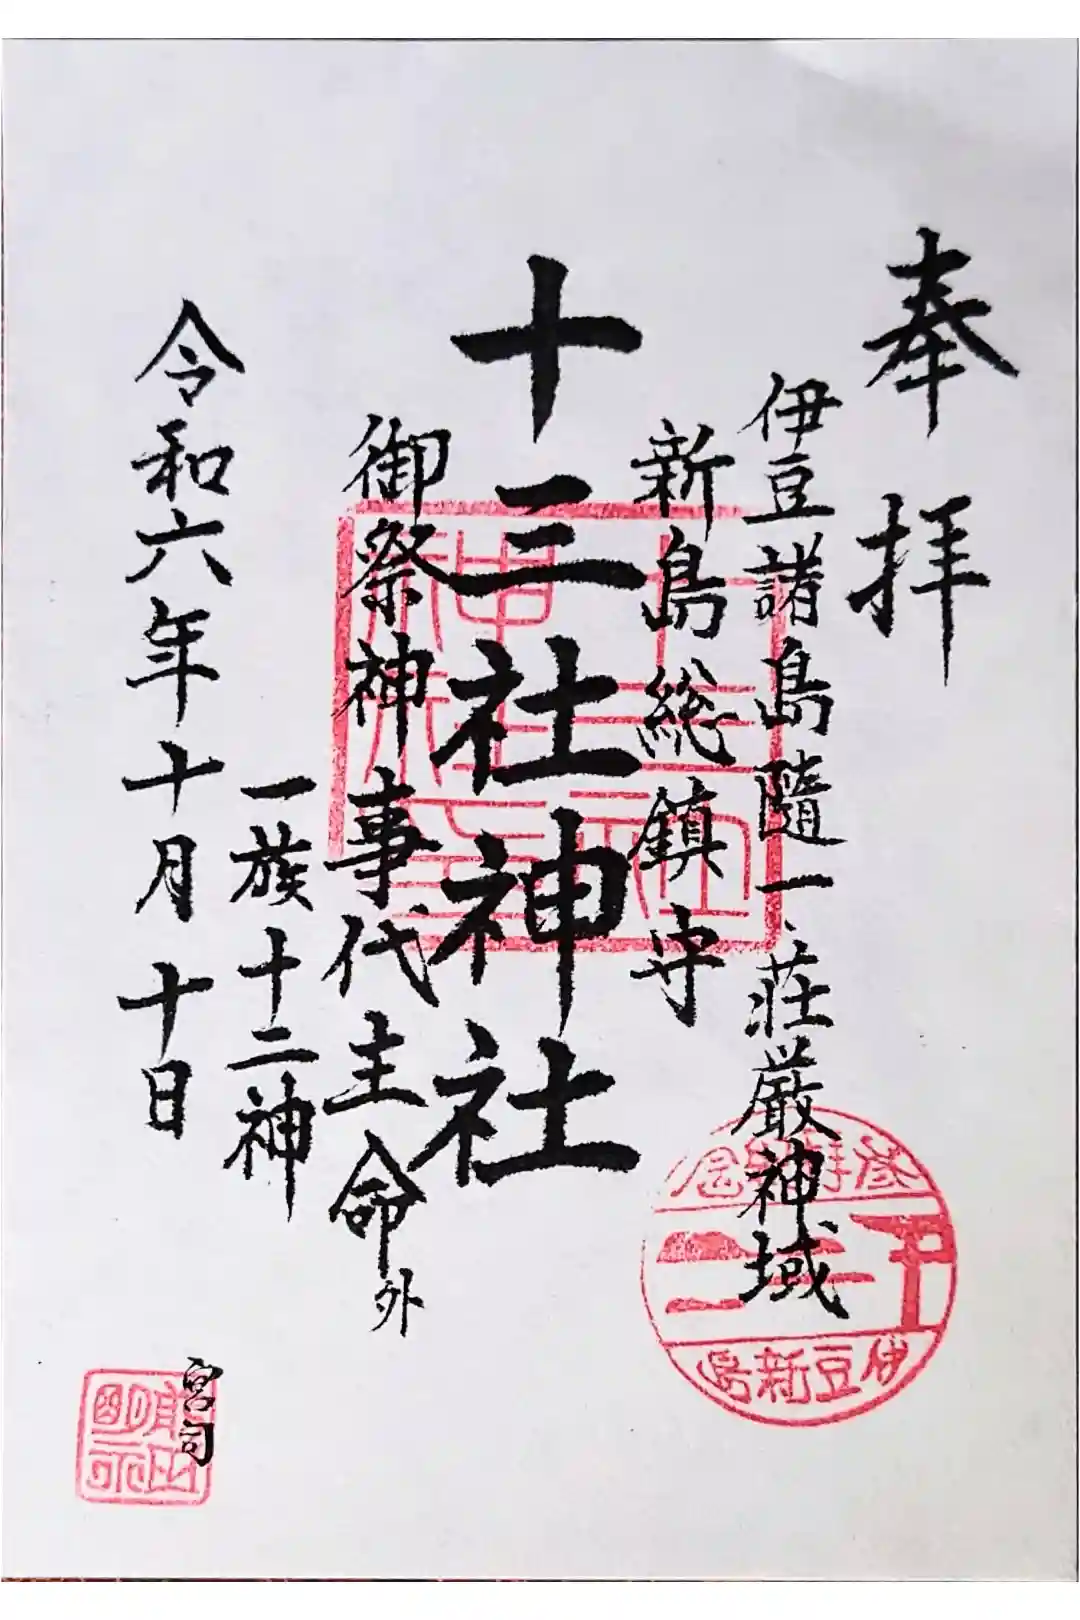 奉拝
伊豆諸島随一、荘厳神域
新島総鎮守
十三社神社
御祭神 事代主命外
一族十二神
令和六年十月十日
宮司
伊豆新島